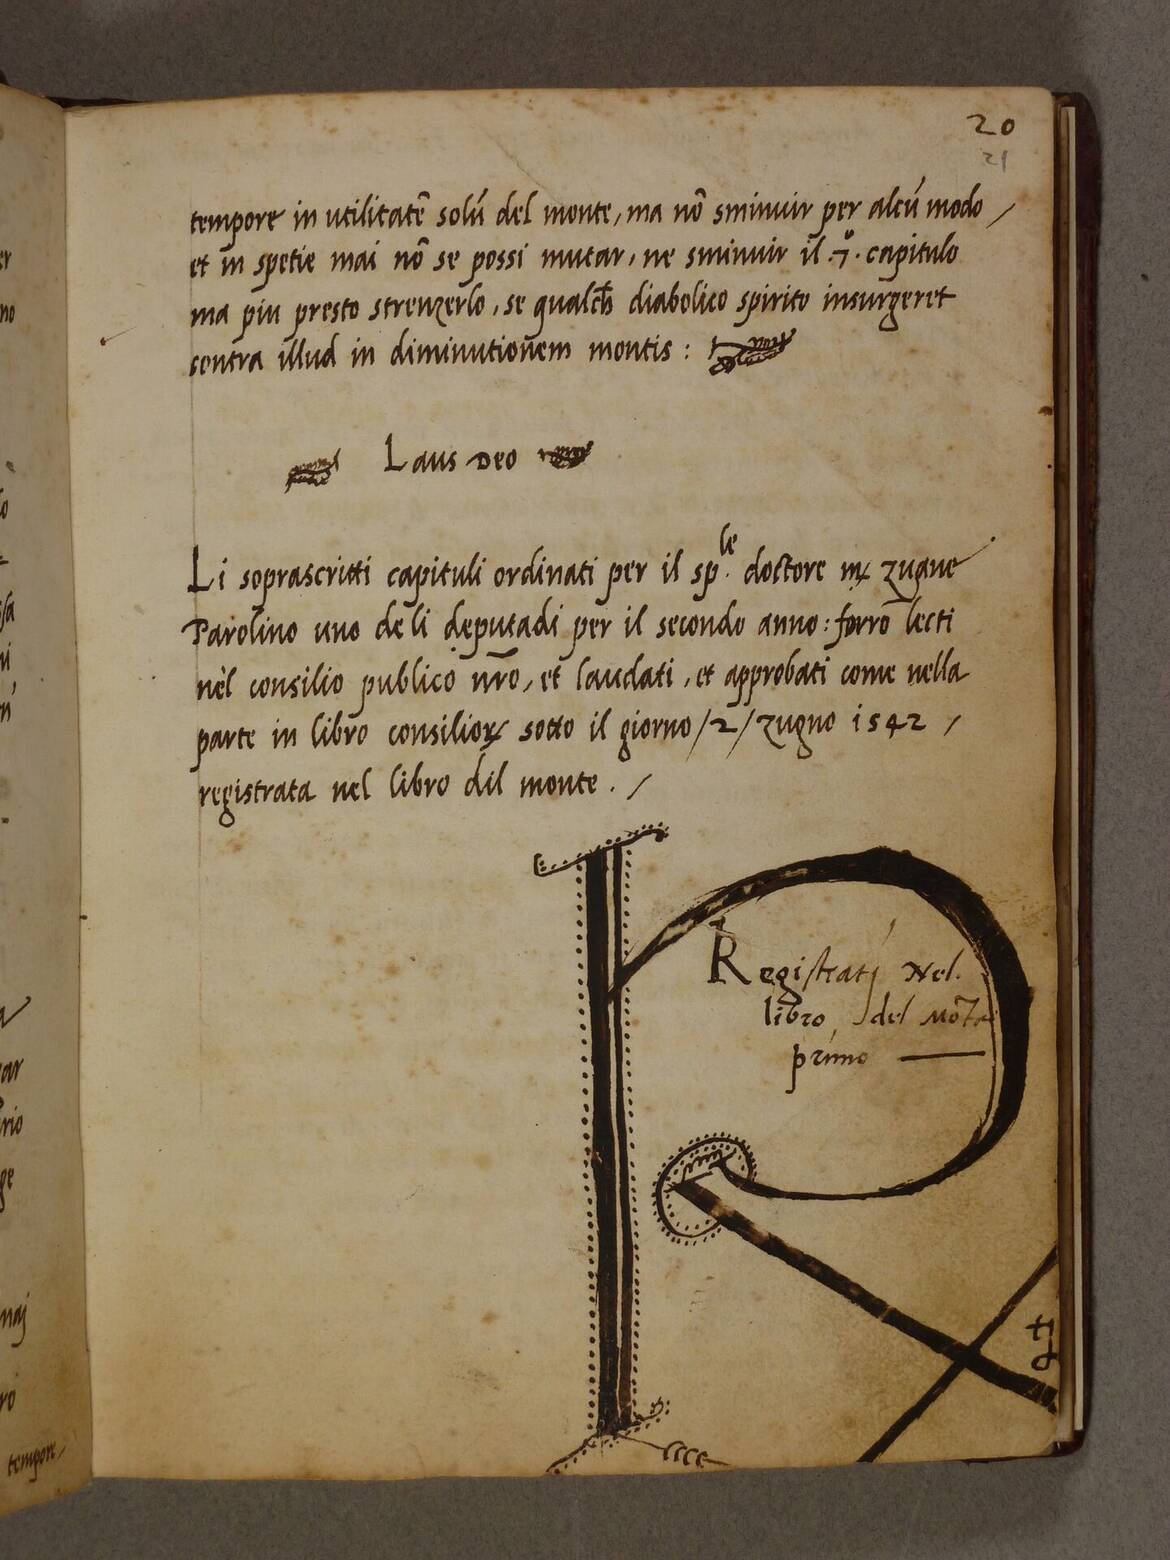 20
21
tempore in utilitatē solū del monte, ma nō sminuir per alcū modo /
et in spetie mai nō se possi mutar, ne sminuir il .7°. capitulo
ma piu presto strenzerlo, se qualch diabolico spirito insurgeret
contra illud in diminutionem montis :
Laus Deo
Li soprascritti capituli ordinati per il sp.le doctore mꝫ zuane
Parolino uno de li deputadi per il secondo anno : forrō lecti
nèl consilio publico nr̄o, et laudati, et approbati come nella
parte in libro consilioꝝ sotto il giorno /2/ zugno 1542 /
registrata nel libro dil monte . /
R
Registrati Nel.
libro del Mōte
primo
tempore